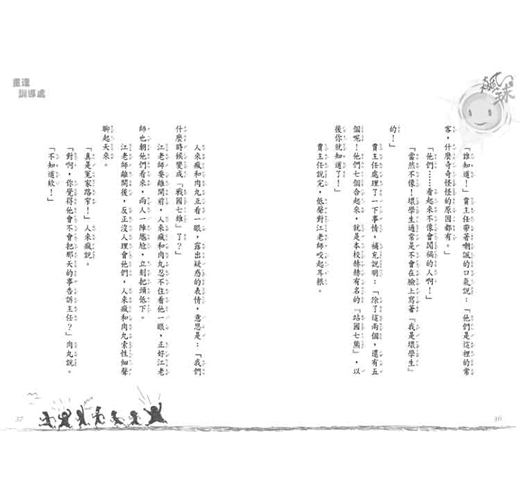 「誰知道！」賣主任帶著嘲諷的口氣說：「他們是這裡的常
客，什麼奇奇怪怪的原因都有。」
「他們……看起來不像會闖禍的人啊！」
「當然不像！壞學生通常是不會在臉上寫著『我是壞學生』
的！」
賣主任處理了一下事情，補充說明：「除了這兩個，還有五
個呢！他們七個合起來，就是本校赫赫有名的『培國七熊』，以
後你就知道了！」
賣主任說完，低聲對江老師咬起耳根。
36
重還
訓導處
人來瘋和肉丸互看一眼，露出疑惑的表情，意思是：「我們
什麼時候變成『戰國七雄』了？」
江老師要離開前，人來瘋和肉丸忍不住看他一眼，正好江老
師也朝他們看來，兩人一陣尷尬，立刻把頭低下。
江老師離開後，反正沒人理會他們，人來瘋和肉丸索性細聲
聊起天來。
「真是冤家路窄！」人來瘋說。
「對啊，你覺得他會不會把那天的事告訴主任？」肉丸說。
「不知道欸！」
37